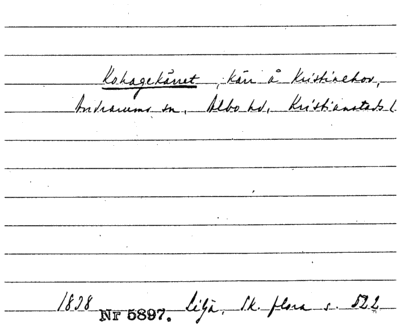 Kohagekärret, kärr å Kristinehov,
Andrarums sn, Albo hd, Kristianstads l.
1838 Nr 5897. Lilja, Sk. flora s. 522